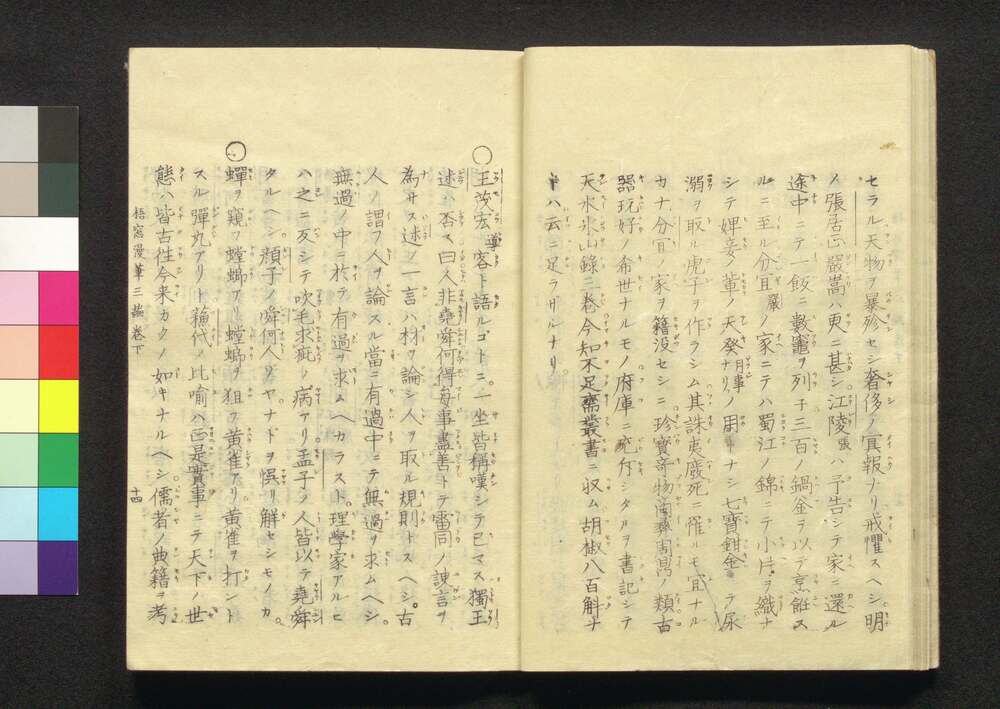 セラル天物ヲ暴殄セシ奢侈ノ冥報ナリ戒懼スヘシ明
ノ張居正嚴嵩ハ更ニ甚シ江陵張ハ予告シテ家ニ還ル
途中ニテ一飯ニ數竈ヲ列子三百ノ鍋金ヲ以テ烹飪ス
ルニ至ル分宜嚴ノ家ニテハ蜀江ノ錦ニテ小片ヲ織ナ
シテ婢妾ノ輩ノ天癸月事ナリノ用トナシ七寶鉗金ヲ尿
溺ヲ取ル虎子ヲ作ラシム其誅夷廢死ニ罹ルモ宜ナル
カナ分宜ノ家ヲ籍没セシニ珍寶奇物商彝周鼎ノ類古
器玩好ノ希世ナルモノ府庫ニ充斥シタルヲ書記シテ
天水氷山錄二卷今知不足齋叢書ニ收ム胡椒八百斛ナ
トハ云ニ足ラサルナリ
〇王茂宏導客ト語ルコトニ一坐皆稱嘆シテ已マス獨王
述ハ否ス曰人非堯舜何得每事盡善トテ雷同ノ諫言ヲ
為サス述ノ一言ハ材ヲ論シ人ヲ取ル規則トスヘシ古
人ノ謂フ人ヲ論スル當ニ有過中ニテ無過ヲ求ムヘシ
無過ノ中ニ於テ有過ヲ求ムヘカラスト理學家アルヒ
ハ之ニ反シテ吹毛求疵ノ病アリ孟子ノ人皆以テ堯舜
タルヘシ顏子ノ舜何人ソヤナトヲ悞リ解セシモノカ
〇蟬ヲ窺フ螳螂アリ螳螂ヲ狙フ黄雀アリ黄雀ヲ打ント
スル彈丸アリト穐代ノ比喻ハ正是實事ニテ天下ノ世
態ハ皆古往今来カクノ如キナルヘシ儒者ノ典籍ヲ考
梧窓漫筆三編卷下
十四